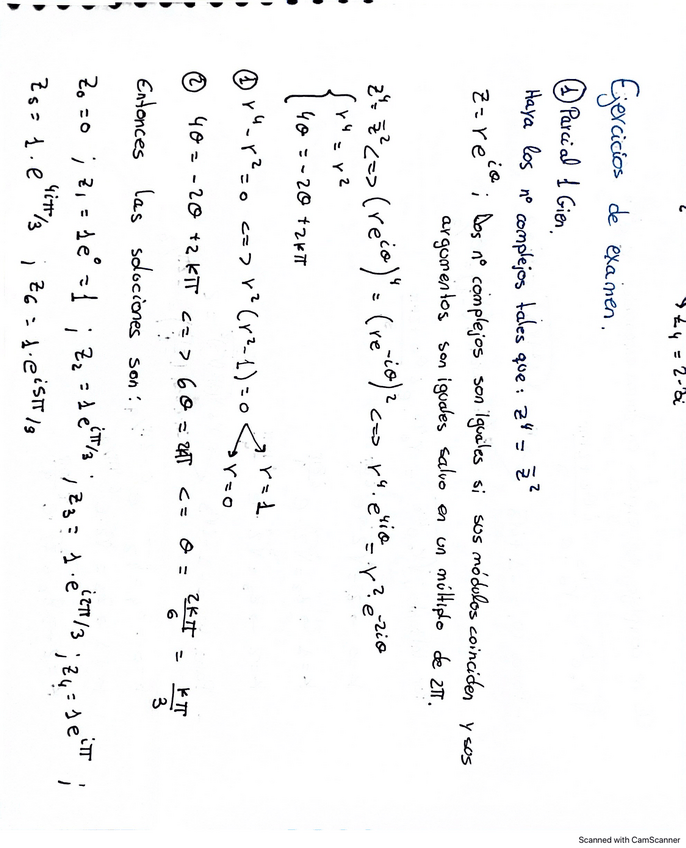 z₄ = 2-2i
Ejercicios de examen.
① Parcial 1 Gien.
Haya los nº complejos tales que: z⁴ = z̄²
z = re^{iθ} ; Dos nº complejos son iguales si sus módulos coinciden y sus
argumentos son iguales salvo en un múltiplo de 2π.
z⁴ = z̄² <=> (re^{iθ})⁴ = (re^{-iθ})² <=> r⁴·e^{4iθ} = r²·e^{-2iθ}
{ r⁴ = r²
4θ = -2θ + 2kπ
① r⁴ - r² = 0 <=> r²(r²-1) = 0 → r = 1
→ r = 0
② 4θ = -2θ + 2kπ <=> 6θ = 2kπ <= θ = 2kπ/6 = kπ/3
Entonces las soluciones son:
z₀ = 0 ; z₁ = 1e⁰ = 1 ; z₂ = 1e^{iπ/3} ; z₃ = 1·e^{i2π/3} ; z₄ = 1e^{iπ} ;
z₅ = 1·e^{4iπ/3} ; z₆ = 1·e^{i5π/3}
Scanned with CamScanner